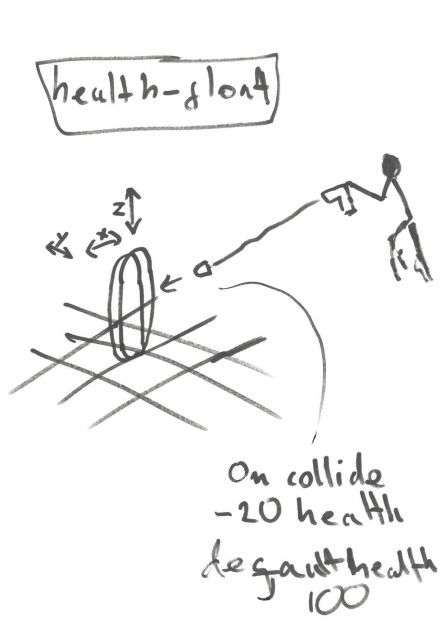 health-float
Z
Y X
On collide
-20 health
default health
100